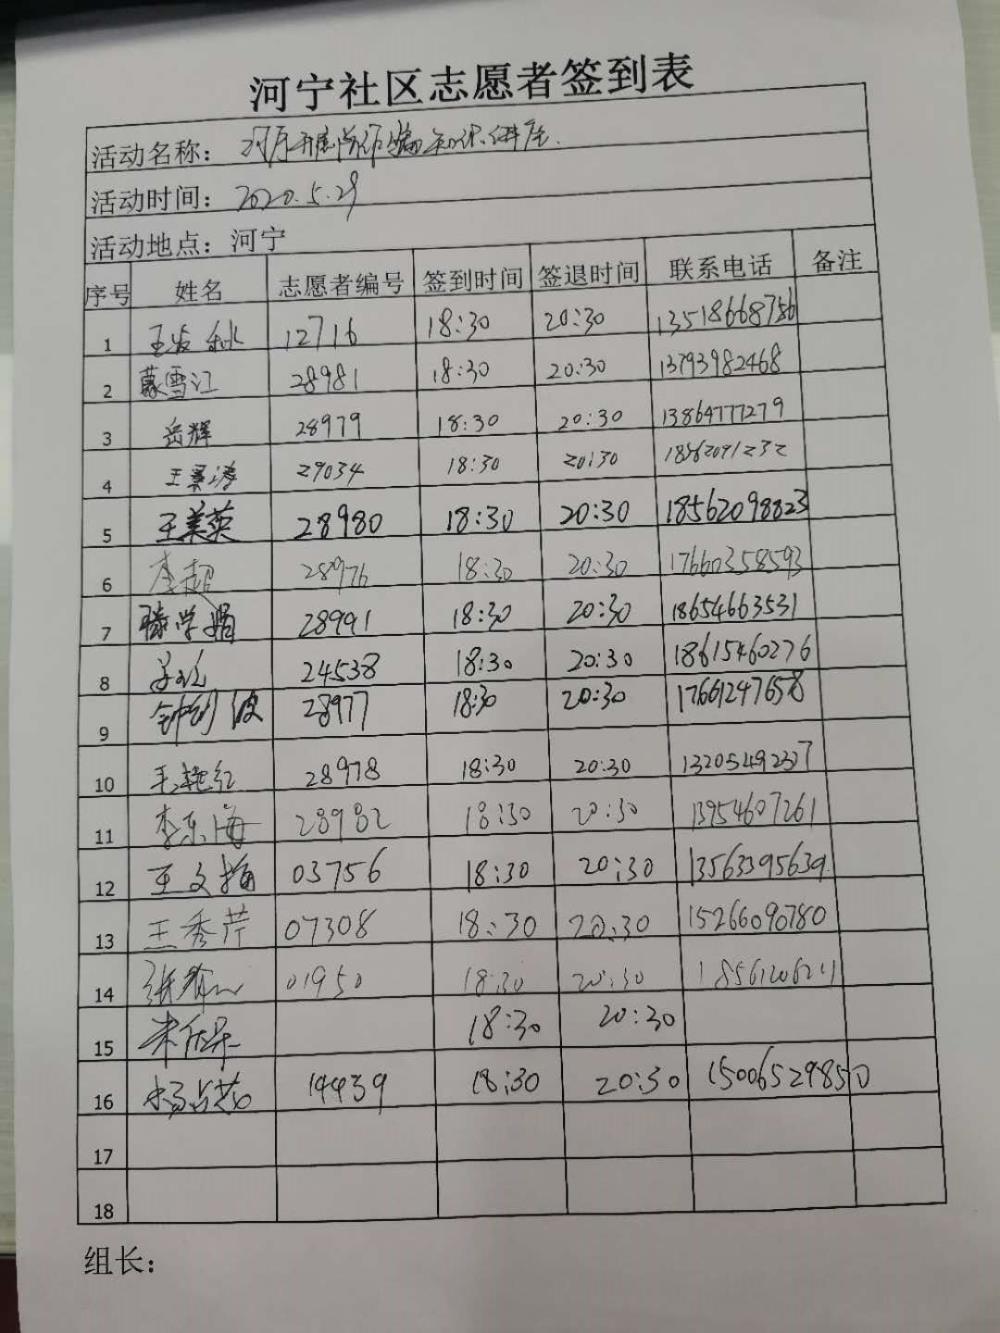 河宁社区志愿者签到表
活动名称：
活动时间：2020.5.29
活动地点：河宁
序号 姓名 志愿者编号 签到时间 签退时间 联系电话 备注
1 12716 18:30 20:30 13518668756
2 蒙雪江 28981 18:30 20:30 13793982468
3 岳辉 28979 18:30 20:30 13864777279
4 29034 18:30 20:30 18562091232
5 王美英 28980 18:30 20:30 18562098823
6 李超 28976 18:30 20:30 17660358593
7 滕学娟 28991 18:30 20:30 18654663531
8 24538 18:30 20:30 18615460276
9 28977 18:30 20:30 17661247658
10 王艳红 28978 18:30 20:30 13205492337
11 李东海 28982 18:30 20:30 13954607261
12 王文梅 03756 18:30 20:30 13563395639
13 王秀芹 07308 18:30 20:30 15266090780
14 01950 18:30 20:30
15 18:30 20:30
16 14439 18:30 20:30 15006529850
17
18
组长：